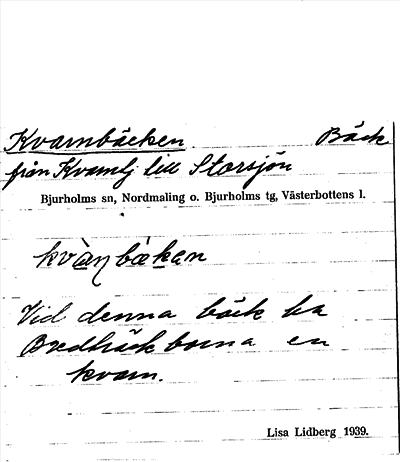 Kvarnbäcken. Bäck
från Kvarntj till Storsjön
Bjurholms sn, Nordmaling o. Bjurholms tg, Västerbottens l.
kvàŋbäkan
Vid denna bäck ha
Bredträskborna en
kvarn.
Lisa Lidberg 1939.